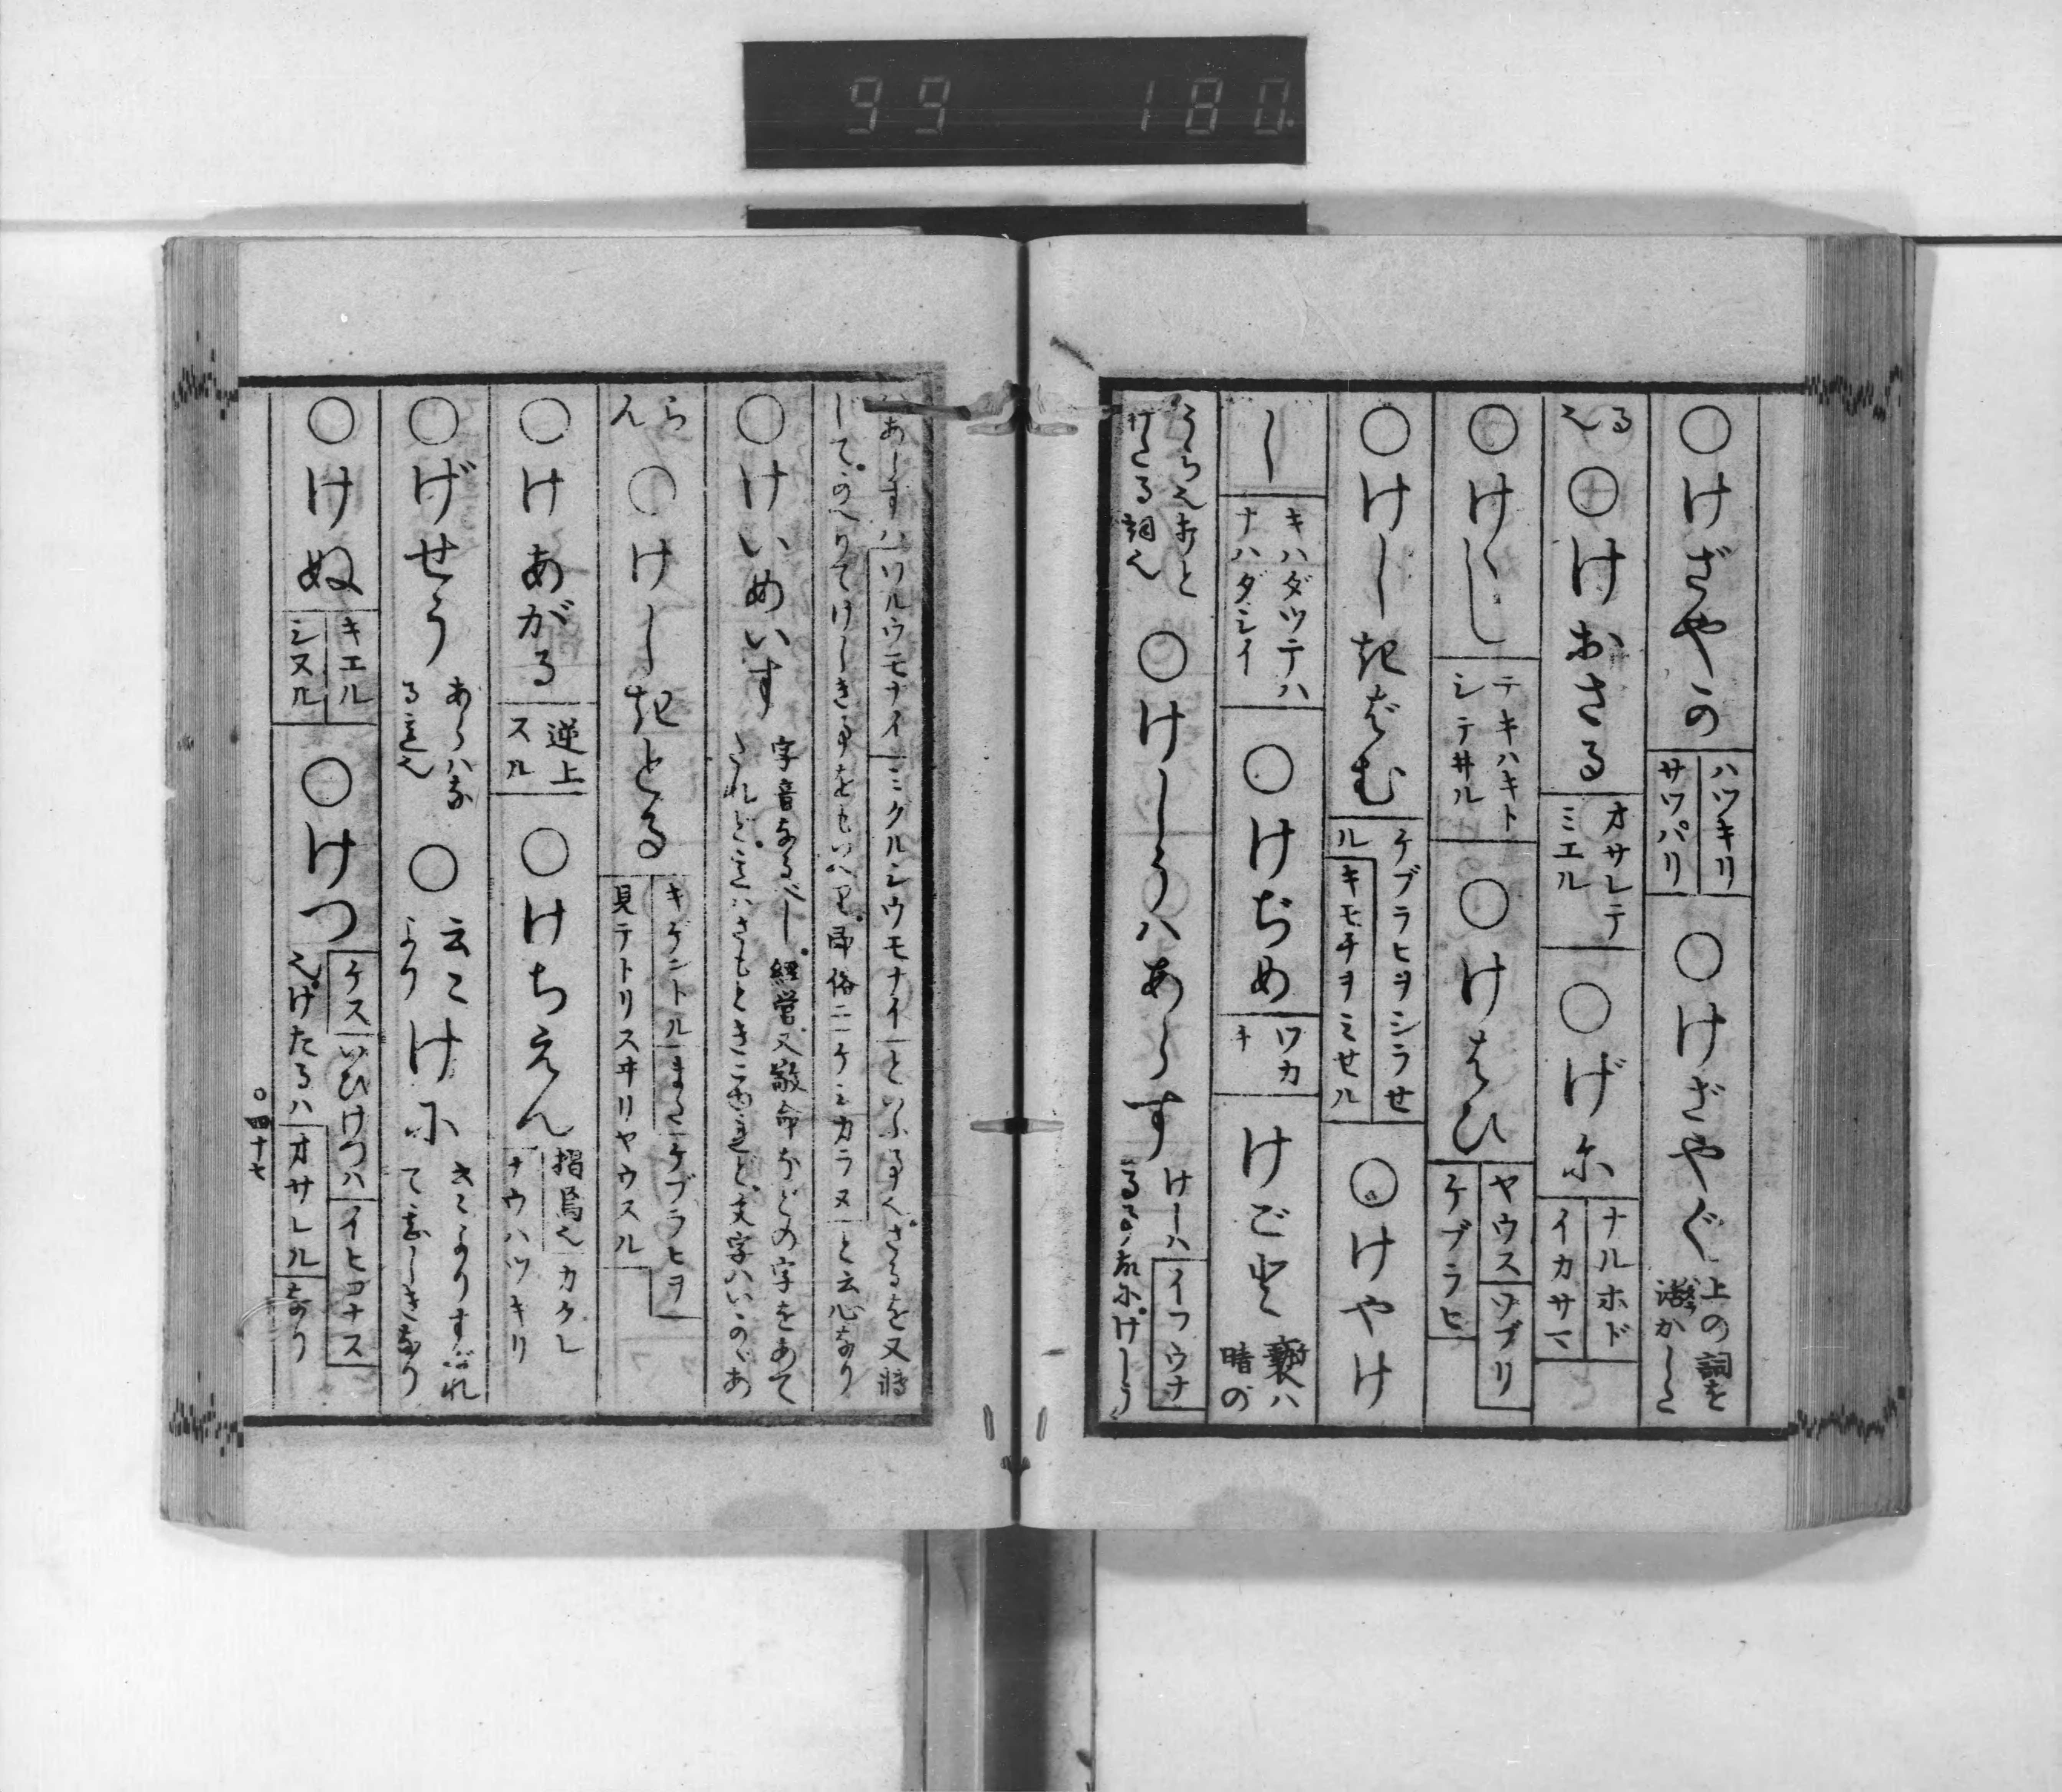 99 180
○けざやか
ハツキリ
サツパリ
○けざやぐ
上の詞を
活かした
る也
○けおさる
オサレテ
ミエル
○げに
ナルホド
イカサマ
○けし
テキハキト
シテヰル
○けはひ
ヤウス
ソブリ
ケブラヒ
○けしきばむ
ケブラヒヲシラセ
ル
キモチヲミセル
○けやけ
し
キハダツテハ
ナハダシイ
○けぢめ
ワカ
キ
けごと
褻ハ
晴の
うらえ
打たる詞也
○けしうハあらず
けしハ
イフウナ
ハワルウモナイ
ミクルシウモナイ
といふ事也さるを又時
してかへりてけしき事をもいへり即俗ニ
ケシカラヌ
と云心なり
○けいめいす
字音なるべし経営又敬命などの字をあて
たれどさもときこゆれど文字ハいかゞあ
らん
○けしきとる
キゲントル
また
ケブラヒヲ
見テトリスヰリヤウスル
○けあがる
逆上
スル
○けちえん
掲焉也
カクレ
ナウハツキリ
○げせう
あらハな
る意也
○云々けに
きくよりすぐれ
て
より
なり
○けぬ
キエル
シヌル
○けつ
ケス
いひけつハ
イヒコナス
也けたるハ
オサレル
なり
○四十七